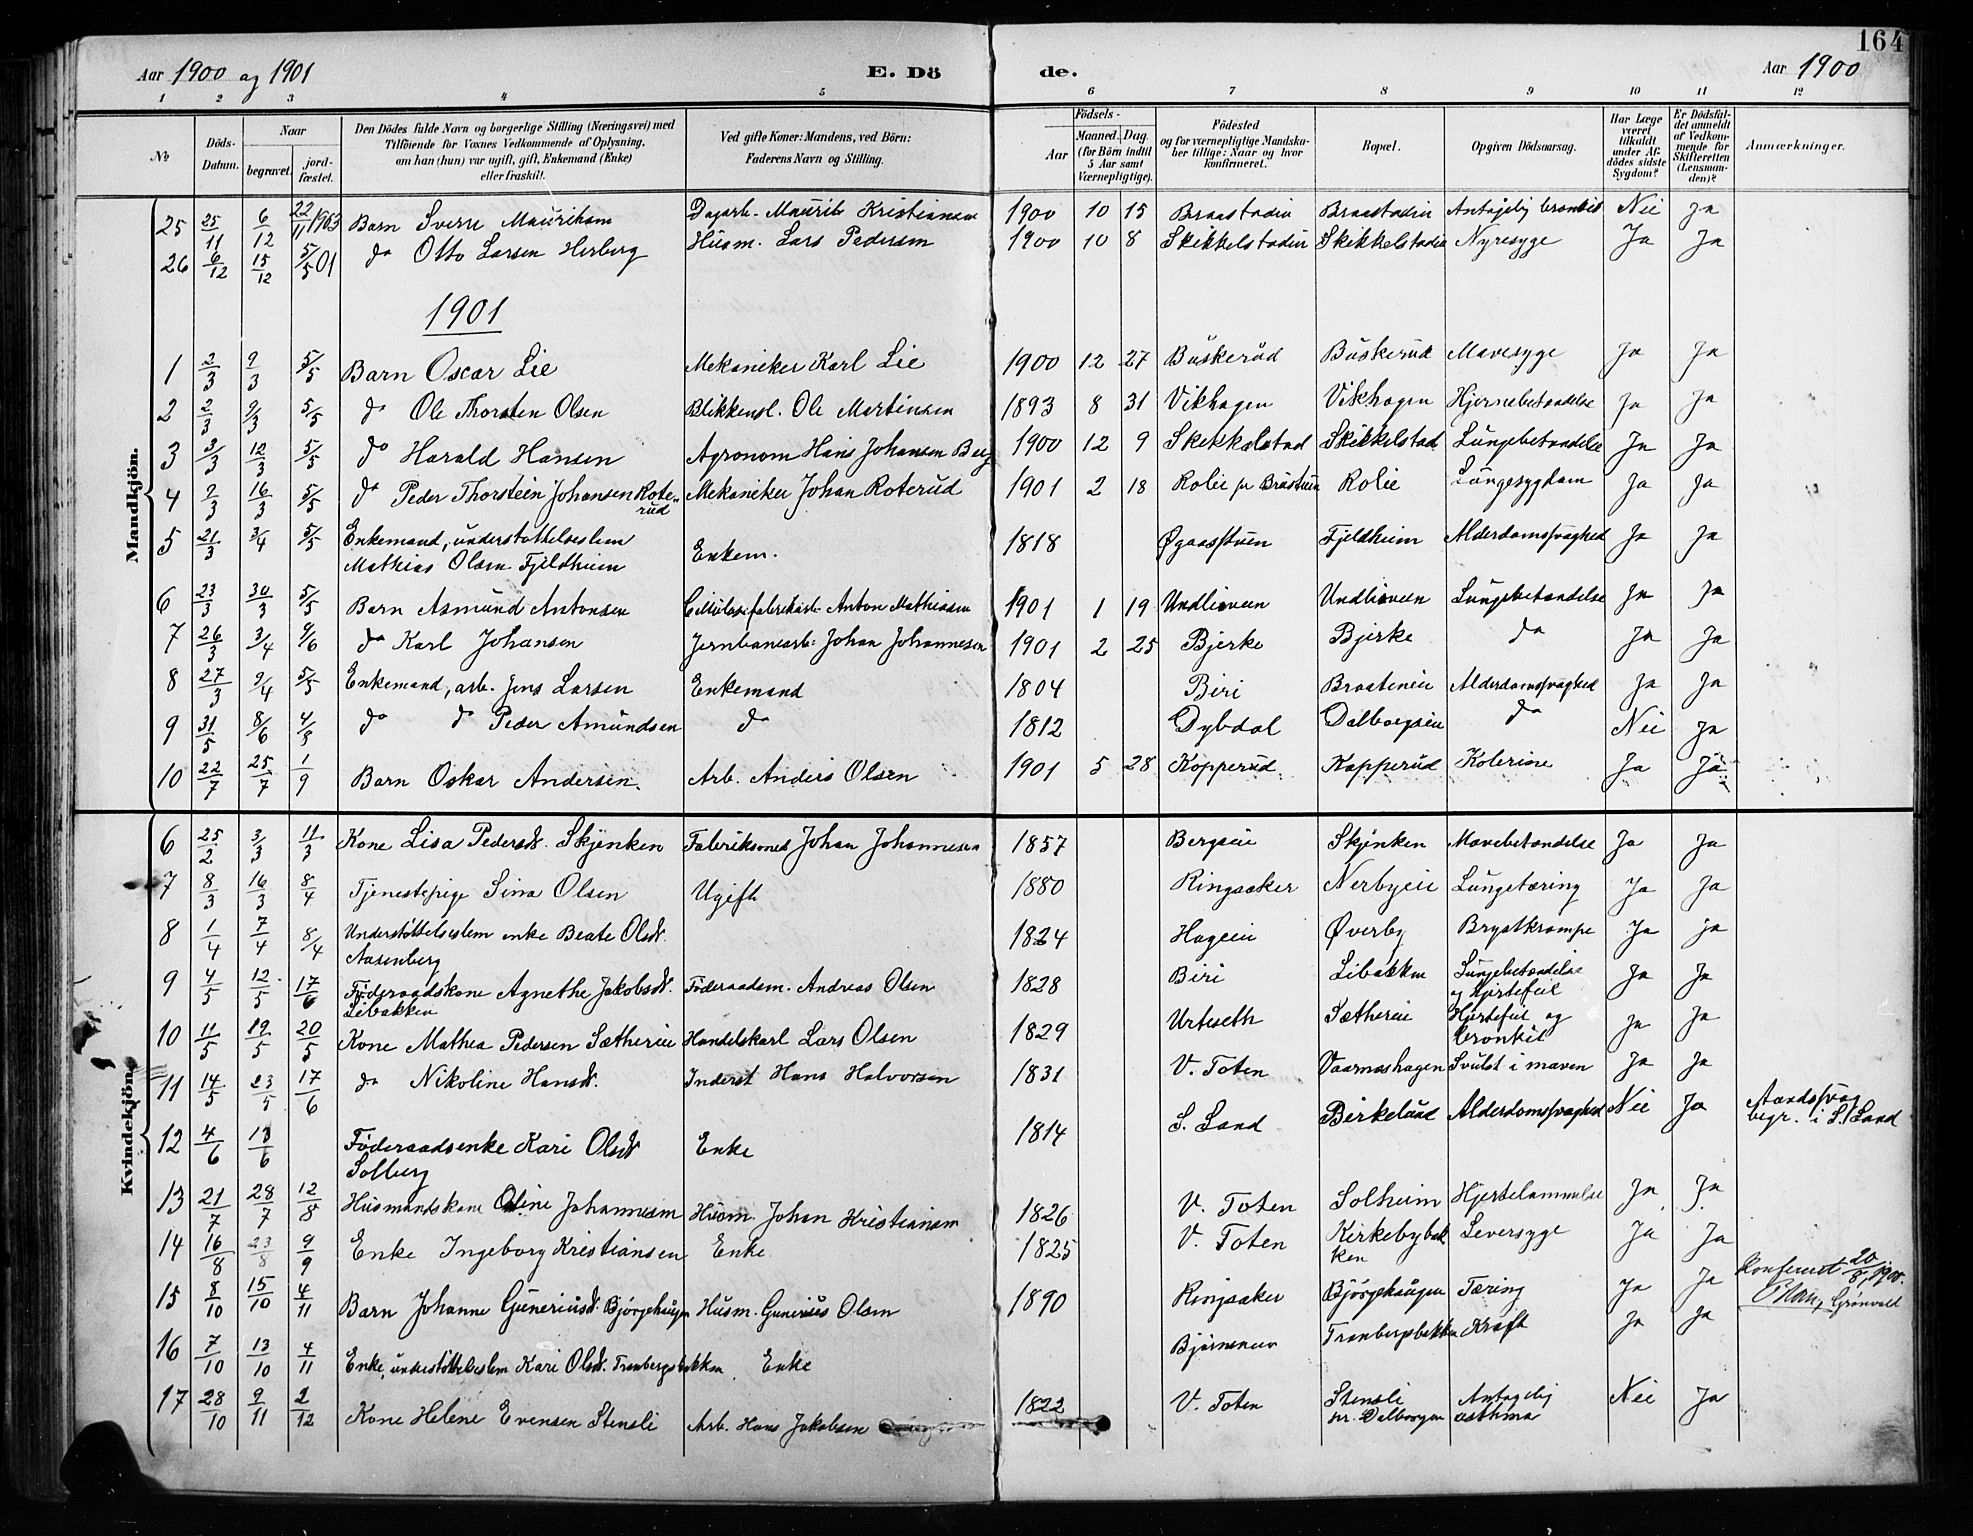 164
Aar 1900 og 1901 E. Dö de. Aar 1900
1 2 3 4 5 6 7 8 9 10 11 12
No Döds-Datum. Naar begravet. jordfæstet. Den Dödes fulde Navn og borgerlige Stilling (Næringsvei) med Tilföiende for Voxnes Vedkommende af Oplysning, om han (hun) var ugift, gift, Enkemand (Enke) eller fraskilt. Ved gifte Koner: Mandens, ved Börn: Faderens Navn og Stilling. Födsels- Aar Maaned. Dag. (for Börn indtil 5 Aar samt Værnepligtige). Födested og for værnepligtige Mandskaber tillige: Naar og hvor konfirmeret. Bopæl. Opgiven Dödsaarsag. Har Læge været tilkaldt under Afdödes sidste Sygdom? Er Dödsfaldet anmeldt af Vedkommende for Skifteretten (Lensmanden)? Anmærkninger.
Mandkjön.
25 25/11 6/12 22/11 1903 Barn Sverre Mauritsen Dagarb. Maurits Kristiansen 1900 10 15 Braastadeie Braastadeie Antagelig bronkit Nei Ja
26 6/12 15/12 5/5 01 do Otto Larsen Herberg Husm. Lars Pedersen 1900 10 8 Skikkelstadeie Skikkelstadeie Nyresyge Ja Ja
1901
1 2/3 9/3 5/5 Barn Oscar Lie Mekaniker Karl Lie 1900 12 27 Buskerud Buskerud Mavesyge Ja Ja
2 2/3 9/3 5/5 do Ole Thorsten Olsen Blikkensl. Ole Martinsen 1893 8 31 Vikhagen Vikhagen Hjernebetændelse Ja Ja
3 3/3 12/3 5/5 do Harald Hansen Agronom Hans Johansen Berg 1900 12 9 Skikkelstad Skikkelstad Lungebetændelse Ja Ja
4 9/3 16/3 5/5 do Peder Thorstein Johansen Roterud Mekaniker Johan Roterud 1901 2 18 Rolie Rolie Lungesygdom Ja Ja
5 21/3 3/4 5/5 Enkemand, understøttelseslem
Mathias Olsen Fjeldheim Enkem. 1818 Øgaardstuen Fjeldheim Alderdomssvaghed Ja Ja
6 23/3 30/3 5/5 Barn Asmund Antonsen Cellulosefabrikarb. Anton Mathiasen 1901 1 19 Undlieveen Undlieveen Lungebetændelse Ja Ja
7 26/3 3/4 9/6 do Karl Johansen Jernbanearb. Johan Johannesen 1901 2 25 Bjerke Bjerke do Ja Ja
8 27/3 9/4 5/5 Enkemand, arb. Jens Larsen Enkemand 1804 Biri Braateneie Alderdomssvaghed Ja Ja
9 31/5 8/6 4/5 do do Peder Amundsen do 1812 Dybdal Dalborgseie do Nei Ja
10 22/7 25/7 1/9 Barn Oskar Andersen. Arb. Anders Olsen 1901 5 28 Kopperud Kopperud Kolerine Ja Ja
Kvindekjön.
6 25/2 3/3 11/3 Kone Lisa Pedersdr. Skjenken Fabriksmed Johan Johannesen 1857 Bergseie Skjenken Mavebetændelse Ja Ja
7 8/3 16/3 8/4 Tjenestepige Sina Olsen Ugift 1880 Ringsaker Nerbyeie Lungetæring Ja Ja
8 1/4 7/4 8/4 Understøttelseslem enke Beate Olsdr.
Aasenberg 1824 Hageeie Øverby Brystkrampe Ja Ja
9 4/5 12/5 17/6 Føderaadskone Agnethe Jakobsdr.
Libakken Føderaadsm. Andreas Olsen 1828 Biri Libakken Lungebetændelse
og hjertefeil Ja Ja
10 11/5 19/5 20/5 Kone Mathea Pedersen Sæthereie Handelskarl Lars Olsen 1829 Urteseth Sætherеie Hjertefeil og
bronkit Ja Ja
11 14/5 23/5 17/6 do Nikoline Hansdr. Inderst Hans Halvorsen 1831 V. Toten Vaarnæshagen Svulst i maven Ja Ja
12 4/6 13/6 Føderaadsenke Kari Olsdr
Solberg Enke 1814 S. Land Birkelund Alderdomssvaghed Nei Ja Aandssvag
begr. i S. Land
13 21/7 28/7 12/8 Husmandskone Oline Johannesen Husm. Johan Kristiansen 1826 V. Toten Solheim Hjertelammelse Ja Ja
14 16/8 23/8 9/9 Enke Ingeborg Kristiansen Enke 1825 V. Toten Kirkebybakken Leversyge Ja Ja
15 8/10 15/10 4/11 Barn Johanne Guneriusdr. Bjørgehaugen Husm. Gunerius Olsen 1890 Ringsaker Bjørgehaugen Tæring Ja Ja Konfereret 20/8 1900.
Grønvold
16 7/10 13/10 4/11 Enke, understøttelseslem Kari Olsdr. Tranbergsbakken Enke Bjørneseie Tranbergsbakken Kræft Ja Ja
17 28/10 9/11 2/12 Kone Helene Evensen Stensli Arb. Hans Jakobsen 1822 V. Toten Stensli
nr. Dalborgen Antagelig
asthma Nei Ja